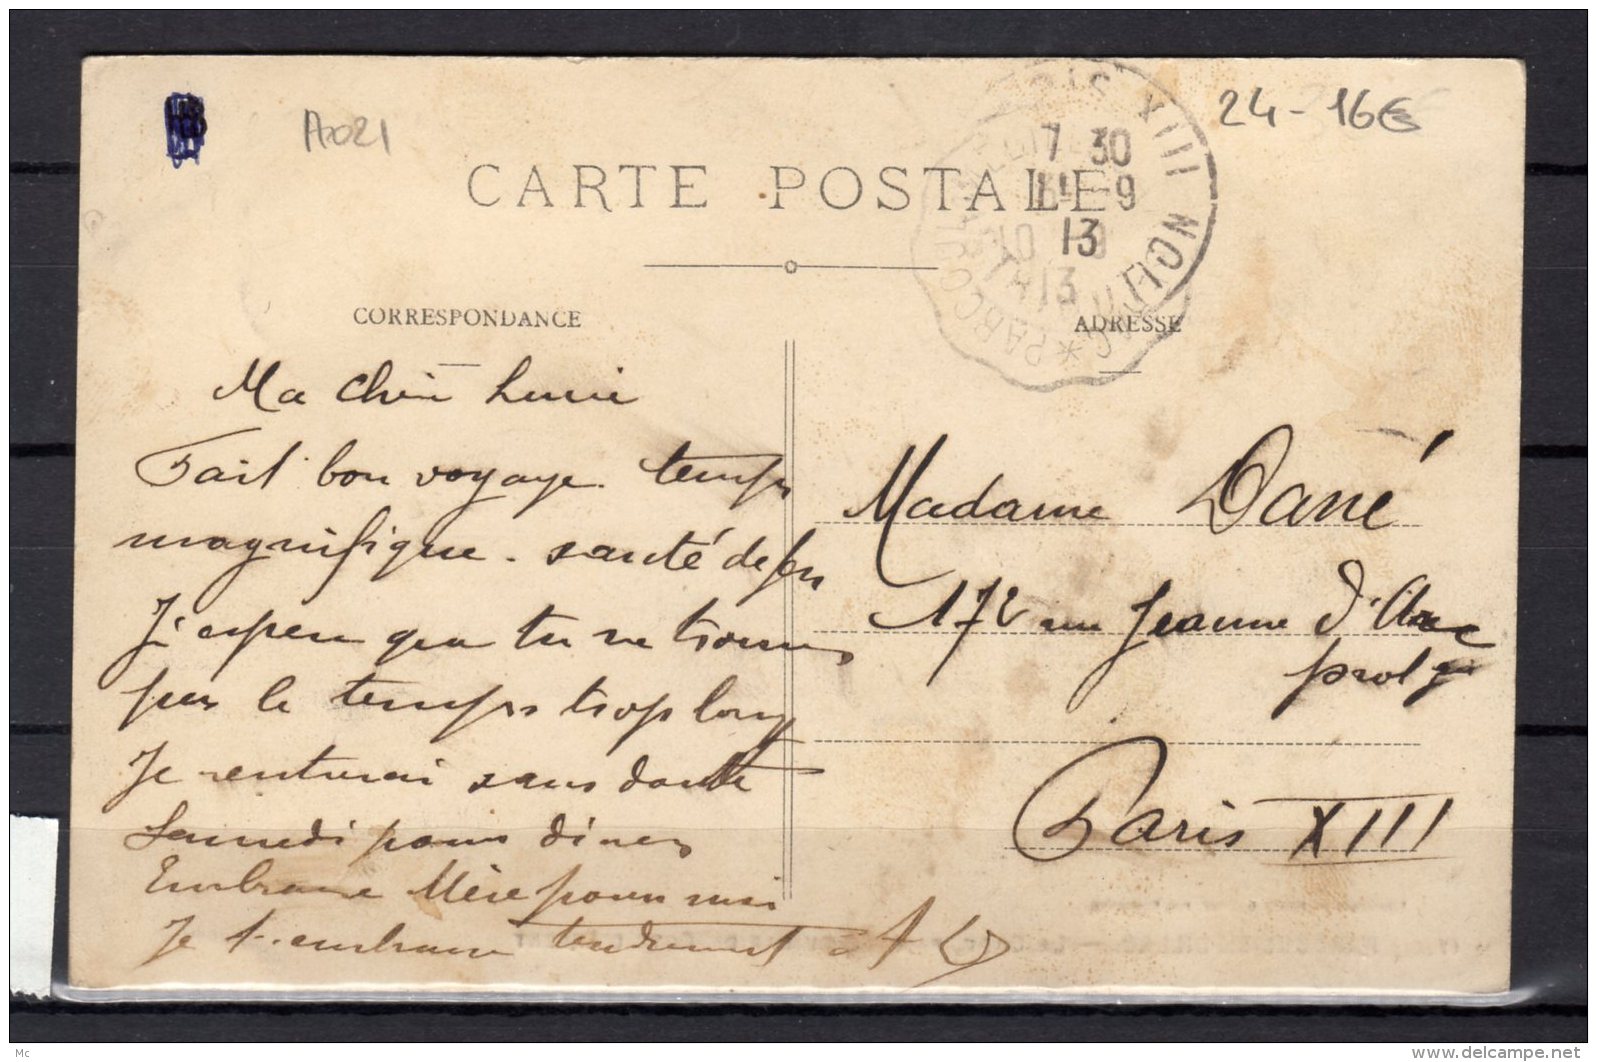 A021
24-16€
CARTE POSTALE
7 30
-9
13
10
13
PARIS XIII
CORRESPONDANCE
ADRESSE
Ma chère Lucie
Fait bon voyage. temps
magnifique. santé de fer
J'espère que tu ne trouves
pas le temps trop long
Je rentrerai sans doute
Samedi pour diner
Embrasse Mère pour moi
Je t'embrasse tendrement
Madame Dané
172 rue Jeanne d'Arc
prolgée
Paris XIII
Mc
www.delcampe.net